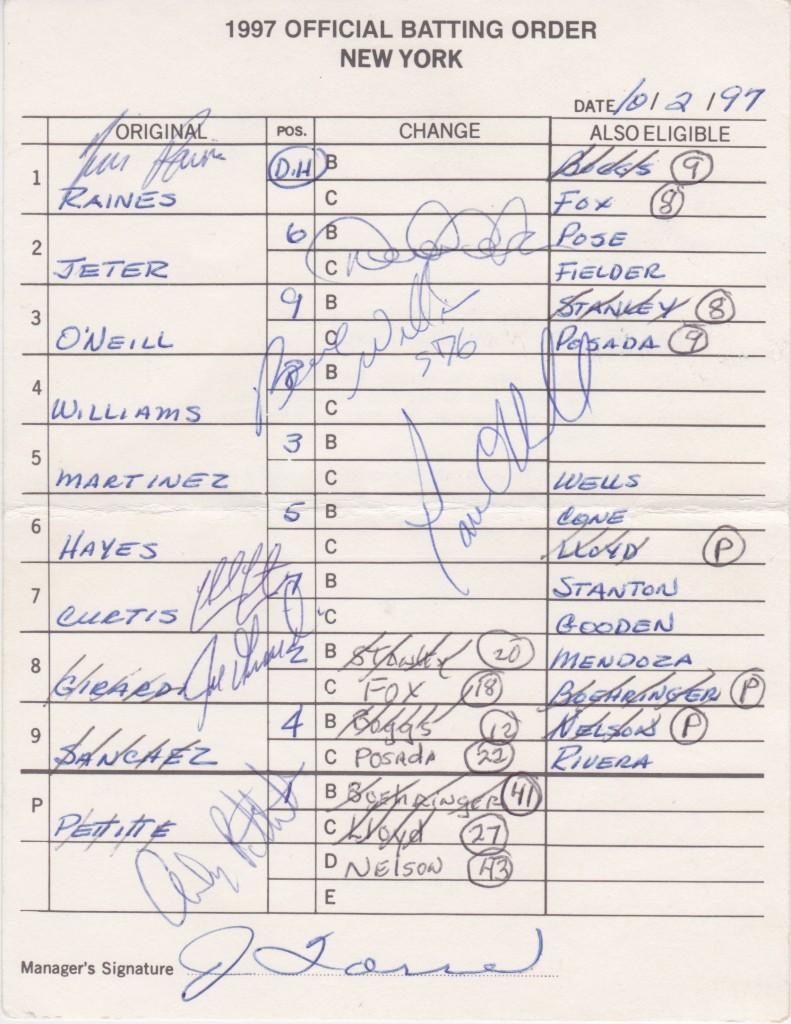 1997 OFFICIAL BATTING ORDER
NEW YORK
DATE 10/2/97
ORIGINAL POS. CHANGE ALSO ELIGIBLE
1 D.H B BOGGS 9
RAINES C FOX 8
2 6 B POSE
JETER C FIELDER
3 9 B STANLEY 8
O'NEILL C POSADA 9
4 8 B 51/6
WILLIAMS C
5 3 B
MARTINEZ C WELLS
6 5 B CONE
HAYES C LLOYD P
7 7 B STANTON
CURTIS C GOODEN
8 2 B Stanley 20 MENDOZA
GIRARDI C FOX 18 BOEHRINGER P
9 4 B Boggs 12 NELSON P
SANCHEZ C POSADA 22 RIVERA
P 1 B BOEHRINGER 41
PETTITTE C Lloyd 27
D NELSON 43
E
Manager's Signature J Torre